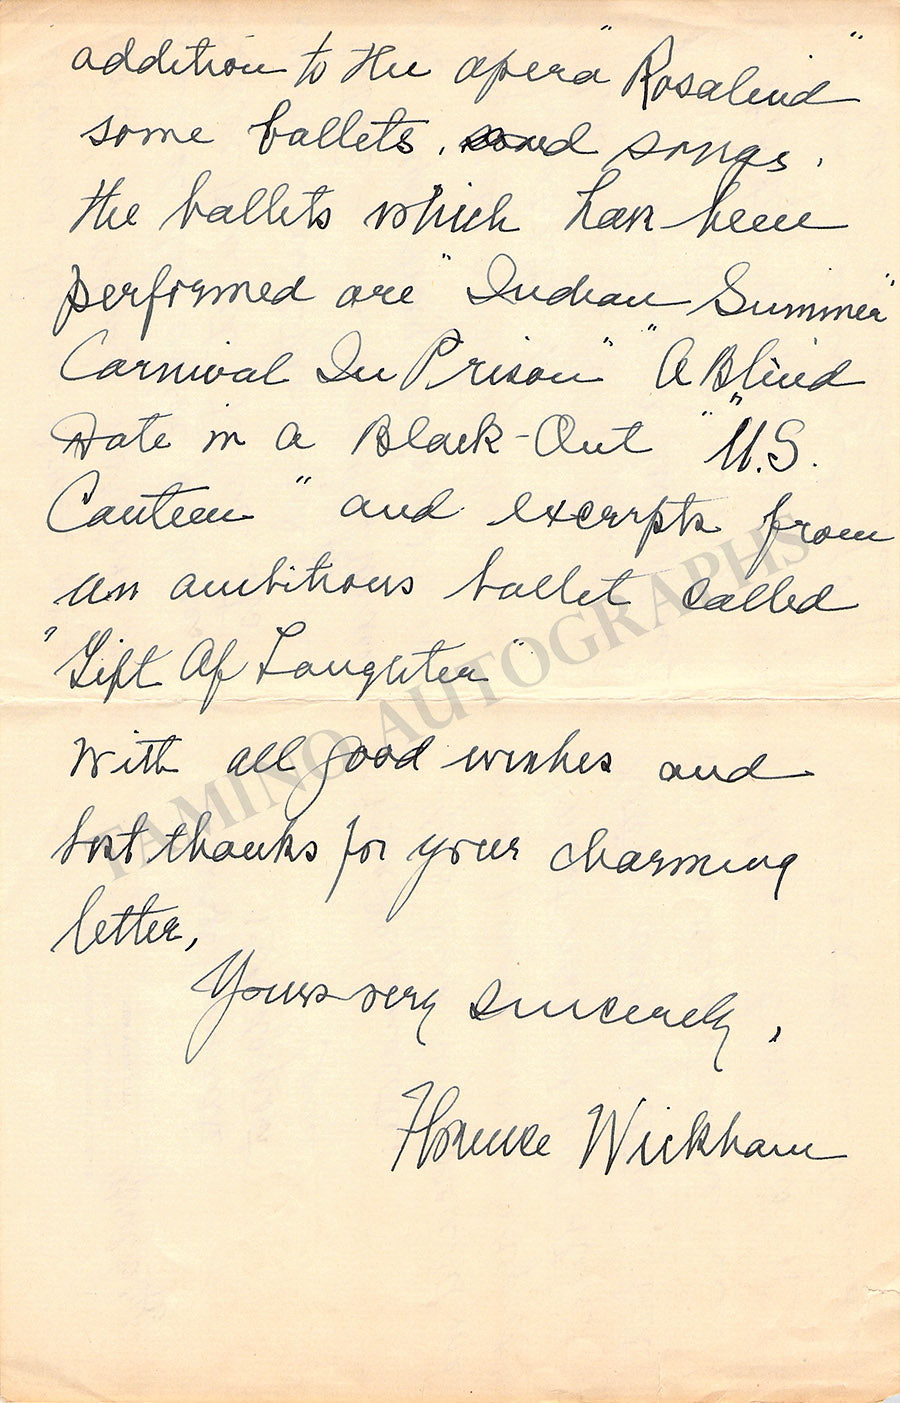 addition to the opera "Rosalind"
some ballets, and songs.
The ballets which have been
performed are "Indian Summer"
Carnival In Prison" "A Blind
Date in a Black-Out" "U.S.
Canteen" and excerpts from
an ambitious ballet called
"Gift Of Laughter"
With all good wishes and
best thanks for your charming
letter,
Yours very sincerely,
Florence Wickham
TAMINO AUTOGRAPHS